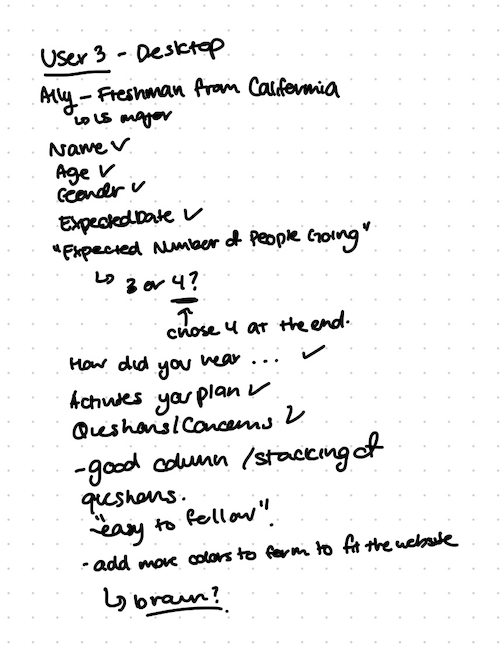 User 3 - Desktop
Ally - Freshman from California
↳ IS major
Name ✓
Age ✓
Gender ✓
Expected Date ✓
"Expected Number of People Going"
↳ 3 or 4?
↑
chose 4 at the end.
How did you hear ... ✓
Activities you plan ✓
Questions/Concerns ✓
- good column / stacking of
questions.
- "easy to follow".
- add more colors to form to fit the website
↳ brown?